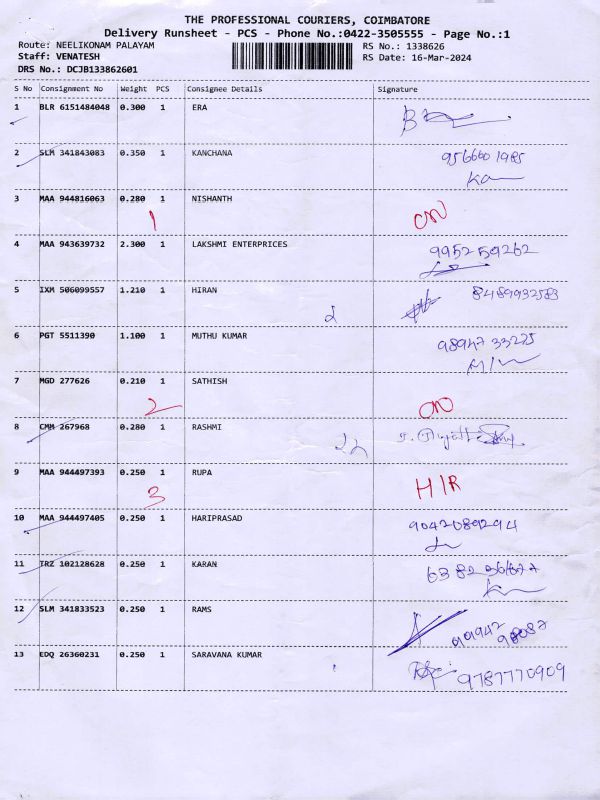 THE PROFESSIONAL COURIERS, COIMBATORE
Delivery Runsheet - PCS - Phone No.:0422-3505555 - Page No.:1
Route: NEELIKONAM PALAYAM RS No.: 1338626
Staff: VENATESH RS Date: 16-Mar-2024
DRS No.: DCJB133862601
S No Consignment No Weight PCS Consignee Details Signature
1 BLR 6151484048 0.300 1 ERA
2 SLM 341843083 0.350 1 KANCHANA
3 MAA 944816063 0.280 1 NISHANTH
1
4 MAA 943639732 2.300 1 LAKSHMI ENTERPRICES 9952 59262
5 IXM 506099557 1.210 1 HIRAN 8489932583
6 PGT 5511390 1.100 1 MUTHU KUMAR
7 MGD 277626 0.210 1 SATHISH
2
8 CMM 267968 0.280 1 RASHMI
9 MAA 944497393 0.250 1 RUPA H/R
3
10 MAA 944497405 0.250 1 HARIPRASAD 9042089294
11 TRZ 102128628 0.250 1 KARAN
12 SLM 341833523 0.250 1 RAMS
13 EDQ 26360231 0.250 1 SARAVANA KUMAR 9787770909